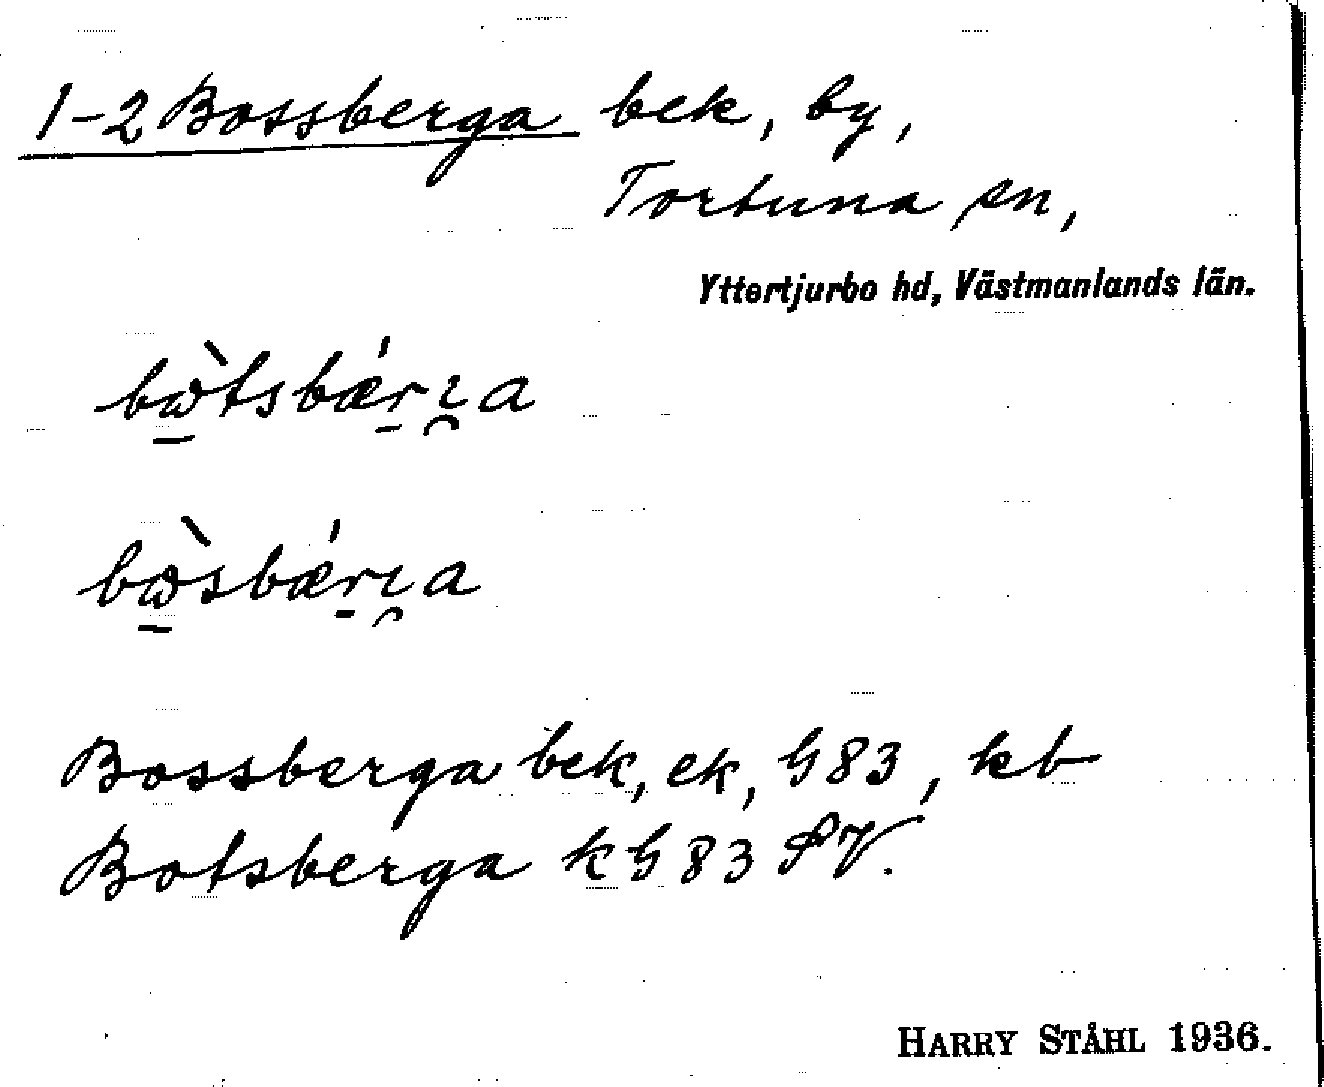 1-2 Bossberga bek, by,
Tortuna sn,
Yttertjurbo hd, Västmanlands län.
bὼ̠tsbǽr̠ı̯a
bὼ̠sbǽr̠ı̯a
Bossberga bek, ek, G83, kb
Botsberga kG83 SV.
HARRY STÅHL 1936.